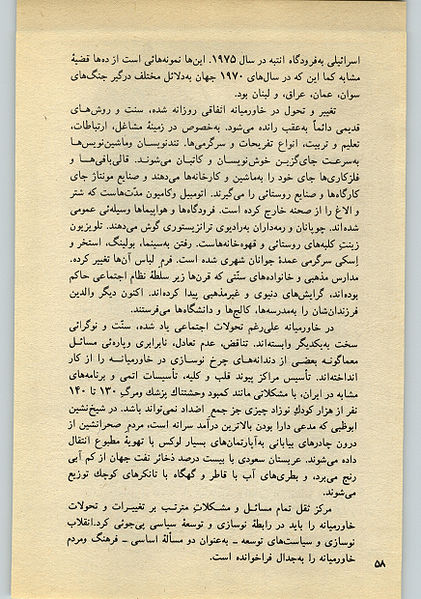 اسرائیلی به‌فرودگاه انتبه در سال ۱۹۷۵. این‌ها نمونه‌هائی است از ده‌ها قضیهٔ
مشابه کما این که در سال‌های ۱۹۷۰ جهان به‌دلائل مختلف درگیر جنگ‌های
سوان، عمان، عراق، و لبنان بود.
تغییر و تحول در خاورمیانه اتفاقی روزانه شده، سنت و روش‌های
قدیمی دائماً به‌عقب رانده می‌شود. به‌خصوص در زمینهٔ مشاغل، ارتباطات،
تعلیم و تربیت، انواع تفریحات و سرگرمی‌ها. تندنویسان وماشین‌نویس‌ها
به‌سرعت جای‌گزین خوش‌نویسان و کاتبان می‌شوند. قالی‌بافی‌ها و
فلزکاری‌ها جای خود را به‌ماشین و کارخانه‌ها می‌دهند و صنایع مونتاژ جای
کارگاه‌ها و صنایع روستائی را می‌گیرند. اتومبیل وکامیون مدّت‌هاست که شتر
و الاغ را از صحنه خارج کرده است. فرودگاه‌ها و هواپیماها وسیله‌ئی عمومی
شده‌اند. چوپانان و رمه‌داران به‌رادیوی ترانزیستوری گوش می‌دهند. تلویزیون
زینتِ کلبه‌های روستائی و قهوه‌خانه‌هاست. رفتن به‌سینما، بولینگ، استخر و
اِسکی سرگرمی عمدهٔ جوانان شهری شده است. فرم لباس آن‌ها تغییر کرده.
مدارس مذهبی و خانواده‌های سنّتی که قرن‌ها زیر سلطهٔ نظام اجتماعی حاکم
بوده‌اند، گرایش‌های دنیوی و غیرمذهبی پیدا کرده‌اند. اکنون دیگر والدین
فرزندان‌شان را به‌مدرسه‌ها، کالج‌ها و دانشگاه‌ها می‌فرستند.
در خاورمیانه علی‌رغم تحولات اجتماعی یاد شده، سنّت و نوگرائی
سخت به‌یکدیگر وابسته‌اند. تناقض، عدم تعادل، نابرابری وپاره‌ئی مسائل
معماگونه بعضی از دندانه‌های چرخ نوسازی در خاورمیانه را از کار
انداخته‌اند. تأسیس مراکز پیوند قلب و کلیه، تأسیسات اتمی و برنامه‌های
مشابه در ایران، با مشکلاتی مانند کمبود وحشتناك پزشك ومرگِ ۱۳۰ تا ۱۴۰
نفر از هزار کودكِ نوزاد چیزی جز جمعِ اضداد نمی‌تواند باشد. در شیخ‌نشین
ابوظبی که مدعی دارا بودن بالاترین درآمد سرانه است، مردم صحرانشین از
درون چادرهای بیابانی به‌آپارتمان‌های بسیار لوکس با تهویهٔ مطبوع انتقال
داده می‌شوند. عربستان سعودی با بیست درصد ذخائر نفت جهان از کم آبی
رنج می‌برد، و بطری‌های آب با قاطر و گهگاه با تانکرهای کوچك توزیع
می‌شوند.
مرکز ثقل تمام مسائل و مشکلاتِ مترتب بر تغییرات و تحولات
خاورمیانه را باید در رابطهٔ نوسازی و توسعهٔ سیاسی پی‌جوئی کرد.انقلاب
نوسازی و سیاست‌های توسعه ـ به‌عنوان دو مسألهٔ اساسی ـ فرهنگ ومردم
خاورمیانه را به‌جدال فراخوانده است.
۵۸